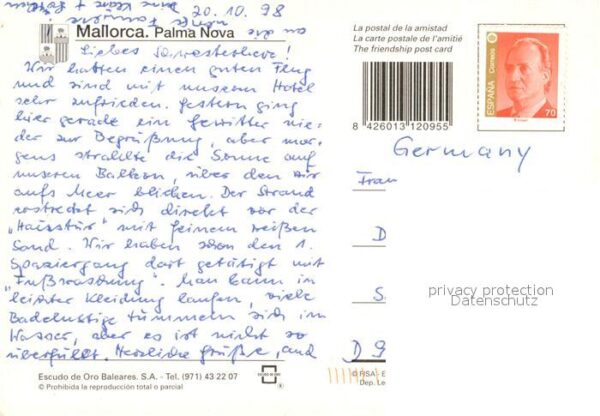 20.10.98
an die
Mallorca. Palma Nova
Liebes Schwesterherz!
Wir hatten einen guten Flug
und sind mit unserem Hotel
sehr zufrieden. Gestern ging
hier gerade ein Gewitter nie-
der zur Begrüßung, aber mor-
gens strahlte die Sonne auf
unseren Balkon, über den wir
aufs Meer blicken. Der Strand
erstreckt sich direkt vor der
"Haustür" mit feinem weißen
Sand. Wir haben schon den 1.
Spaziergang dort getätigt mit
"Fußwaschung". Man kann in
leichter Kleidung laufen, viele
Badelustige tummeln sich im
Wasser, aber es ist nicht so
überfüllt. Herzliche Grüße, auch
Escudo de Oro Baleares. S.A. - Tel. (971) 43 22 07
© Prohibida la reproducción total o parcial
La postal de la amistad
La carte postale de l'amitié
The friendship post card
8 426013 120955
ESPAÑA
Correos
70
Germany
Frau
D
S
D 9
privacy protection
Datenschutz
© FISA - E
Dep. Le